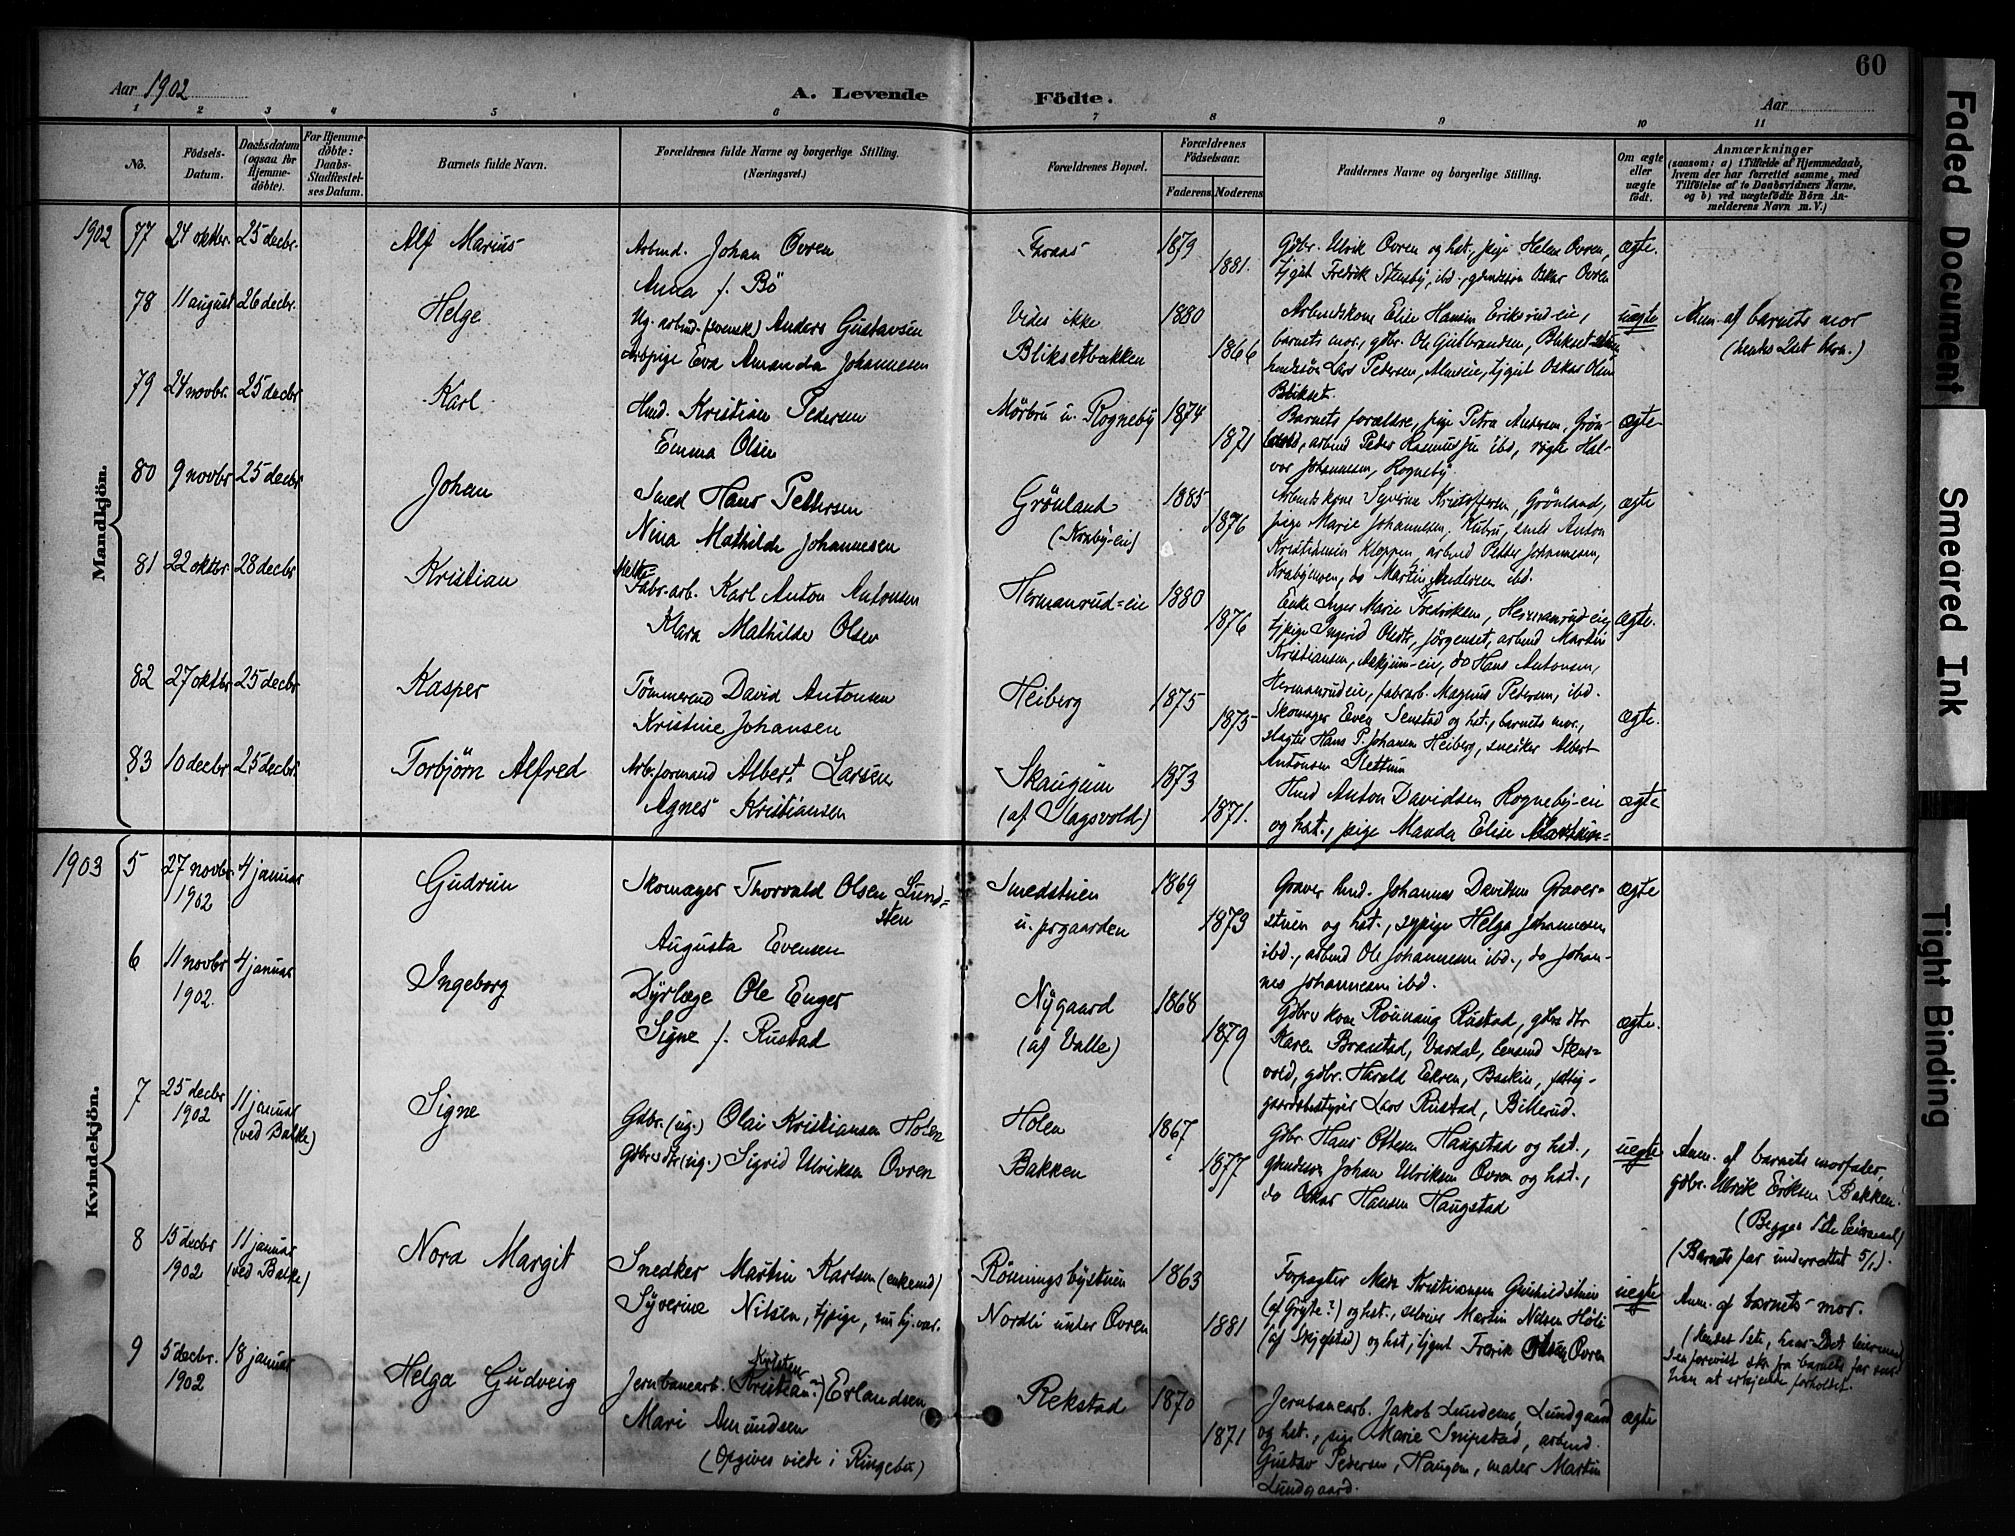 60
Aar 1902
A. Levende
Födte.
Aar
1 2 3 4 5 6 7 8 9 10 11
No.
Födsels-
Datum.
Daabsdatum
(ogsaa for
Hjemme-
döbte).
For Hjemme-
döbte:
Daabs-
Stadfæstel-
ses Datum.
Barnets fulde Navn.
Forældrenes fulde Navne og borgerlige Stilling.
(Næringsvei.)
Forældrenes Bopæl.
Forældrenes
Födselsaar.
Faderens. Moderens.
Faddernes Navne og borgerlige Stilling.
Om ægte
eller
uægte
födt.
Anmærkninger
(saasom: a) i Tilfælde af Hjemmedaab,
hvem der har forrettet samme, med
Tilföielse af to Daabsvidners Navne,
og b) ved uægtefödte Börn An-
melderens Navn m. V.)
Mandkjön.
1902 77 24 oktbr. 25 decbr. Alf Marius
Arbmd. Johan Ovren
Anna f. Bö
1879
1881.
Gdbr. Ulrik Ovren og hst., pige Helen Ovren,
tjgut Fredrik Stensby, ibd., gdmdssön Oskar Ovren
ægte.
78 11 august 26 decbr. Helge
Ug. arbmd. (svensk) Anders Gustavsen
Arbpige Eva Amanda Johannesen
Vides ikke
Bliksetbakken
1880
1866
Arbmdskone Elise Hansen Eriksrud-eie,
barnets mor, gdbr. Ole Gulbrandsen, Blikset
Lars Pedersen, tjgut Oskar Olsen
Blikset.
uægte
Anm. af barnets mor
(hendes 2det barn.)
79 24 novbr. 25 decbr. Karl
Hmd. Kristian Pedersen
Emma Olsen
Mörbru u. Rogneby
1874
1871
Barnets forældre, pige Petra Andersen, Grön-
land, arbmd Peder Rasmussen ibd, røgter Hal-
vor Johannesen, Rogneby.
ægte
80 9 novbr 25 decbr Johan
Smed Hans Pettersen
Nina Mathilde Johannesen
Grönland
(Kraby-eie)
1885
1876
Arbmdskone Syverine Kristoffersen, Grönland,
pige Marie Johannesen, Kubru, smed Anton
Kristiansen Kloppen, arbmd Petter Johannesen,
Krabyenven, do Martin Andersen ibd.
ægte
81 22 oktbr 28 decbr Kristian
Melke-
Fabr.arb. Karl Anton Antonsen
Klara Mathilde Olsen
Hermanrud-eie
1880
1876
Enke Inger Marie Fredriksen, Hermanrud-eie,
tjpige Ingerid Olsdtr, Jörgenset, arbmd Martin
Kristiansen, Askjum-eie, do Hans Antonsen,
Hermanrudeie, fabrarb. Magnus Pedersen, ibd.
ægte.
82 27 oktbr 25 decbr Kasper
Tömmermd David Antonsen
Kristine Johansen
Heiberg
1875
1875
Skomager Even Senstad og hst., barnets mor,
slagter Hans P. Johansen Heiberg, snekker Albert
Antonsen Slettum
ægte.
83 10 decbr 25 decbr. Torbjörn Alfred
Arb.formand Albert Larsen
Agnes Kristiansen
Skaugum
(af Hagsvold)
1873
1871.
Hmd Anton Davidsen Rogneby-eie
og hst., pige Manda Elise
ægte
Kvindekjön.
1903 5 27 novbr. 1902 4 januar Gudrun
Skomager Thorvald Olsen Lund-
sten
Augusta Evensen
Smedstuen
u. prgaarden
1869
1873
Graver hmd. Johannes Davidsen Graver-
stuen og hst., sypige Helga Johannesen
ibd., arbmd Ole Johannesen ibd., do Johan-
nes Johannesen ibd.
ægte
6 11 novbr 1902. 4 januar Ingeborg
Dyrlæge Ole Enger
Signe f. Rustad
Nygaard
(af Valle)
1868
1879
Gdbrs kone Rönnaug Rustad, gdbrs dtr
Karen Branstad, Vardal, lensmd Stens-
vold, gdbr. Harald Ekren, Baskin, fattig-
gaardsbestyrer Lars Rustad, Billerud.
ægte.
7 25 decbr 1902 11 januar (ved Balke) Signe
Gdbr. (ug.) Olai Kristiansen Holen
Gdbrs dtr (ug.) Sigrid Ulriksen Ovren
Holen
Bakken
1867
1877
Gdbr. Hans Ottesen Haugstad og hst.,
gdmdssön Johan Ulriksen Ovren og hst.,
do Oskar Hansen Haugstad
uægte
Anm. af barnets morfader,
gdbr. Ulrik Eriksen Bakken.
(Begges 1ste leiermaal)
(Barnets far underrettet 5/1).
8 15 decbr 1902 11 januar (ved Balke) Nora Margit
Snedker Martin Karlsen (enkemd)
Syverine Nilsen, tjpige, 
Rönningsbystuen
Nordli under Ovren
1863
1881
Forpagter Kristiansen Gunhildstuen
(af Gryte?) og hst., Martin Nilsen Höli
og hst., tjgut Fredrik Olsen Ovren
uægte
Anm. af barnets mor.
(hendes 1ste, hans 2det leiermaal
I en forevist skr. fra barnets far
han at erkjende forholdet.
9 5 decbr. 1902 18 januar Helga Gudveig
Kristen
Jernbanearb. (Kristian?) Erlandsen
Mari Amundsen
(Opgives viede i Ringebu)
Rekstad
1870
1871
Jernbanearb. Jakob Lundene, Lundgaard
og hst., pige Marie Snipstad, arbmd.
Gustav Pedersen, Haugom, maler Martin
Lundgaard.
ægte
Faded Document
Smeared Ink
Tight Binding